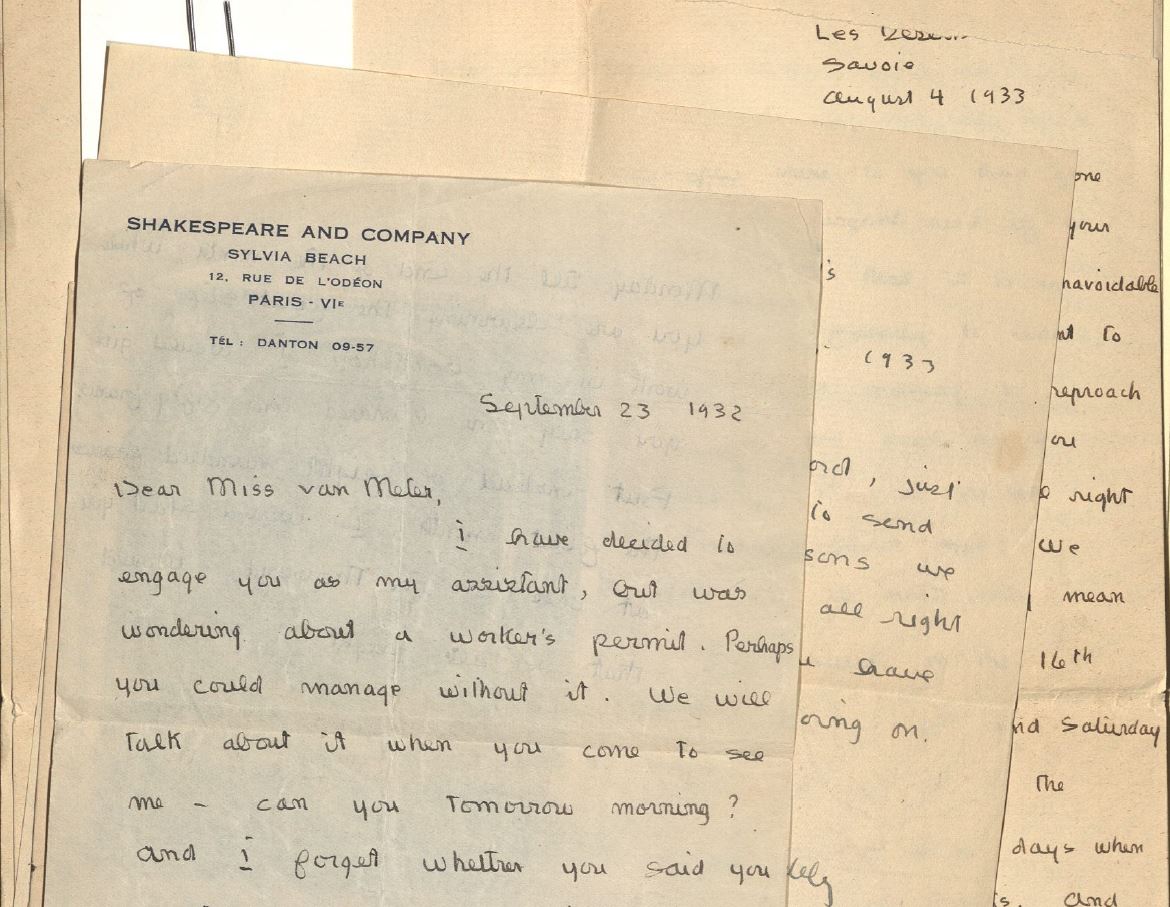 SHAKESPEARE AND COMPANY
SYLVIA BEACH
12, RUE DE L'ODÉON
PARIS - VIE
TÉL : DANTON 09-57
September 23 1932
Dear Miss van Meter,
I have decided to
engage you as my assistant, but was
wondering about a worker's permit. Perhaps
you could manage without it. We will
talk about it when you come to see
me - can you tomorrow morning?
And I forget whether you said you
's
1933
ord, just
to send
sons we
all right
have
oing on.
Les
Savoie
August 4 1933
one
your
navoidable
nt to
reproach
ou
right
We
mean
16th
nd Saturday
The
days when
s. And